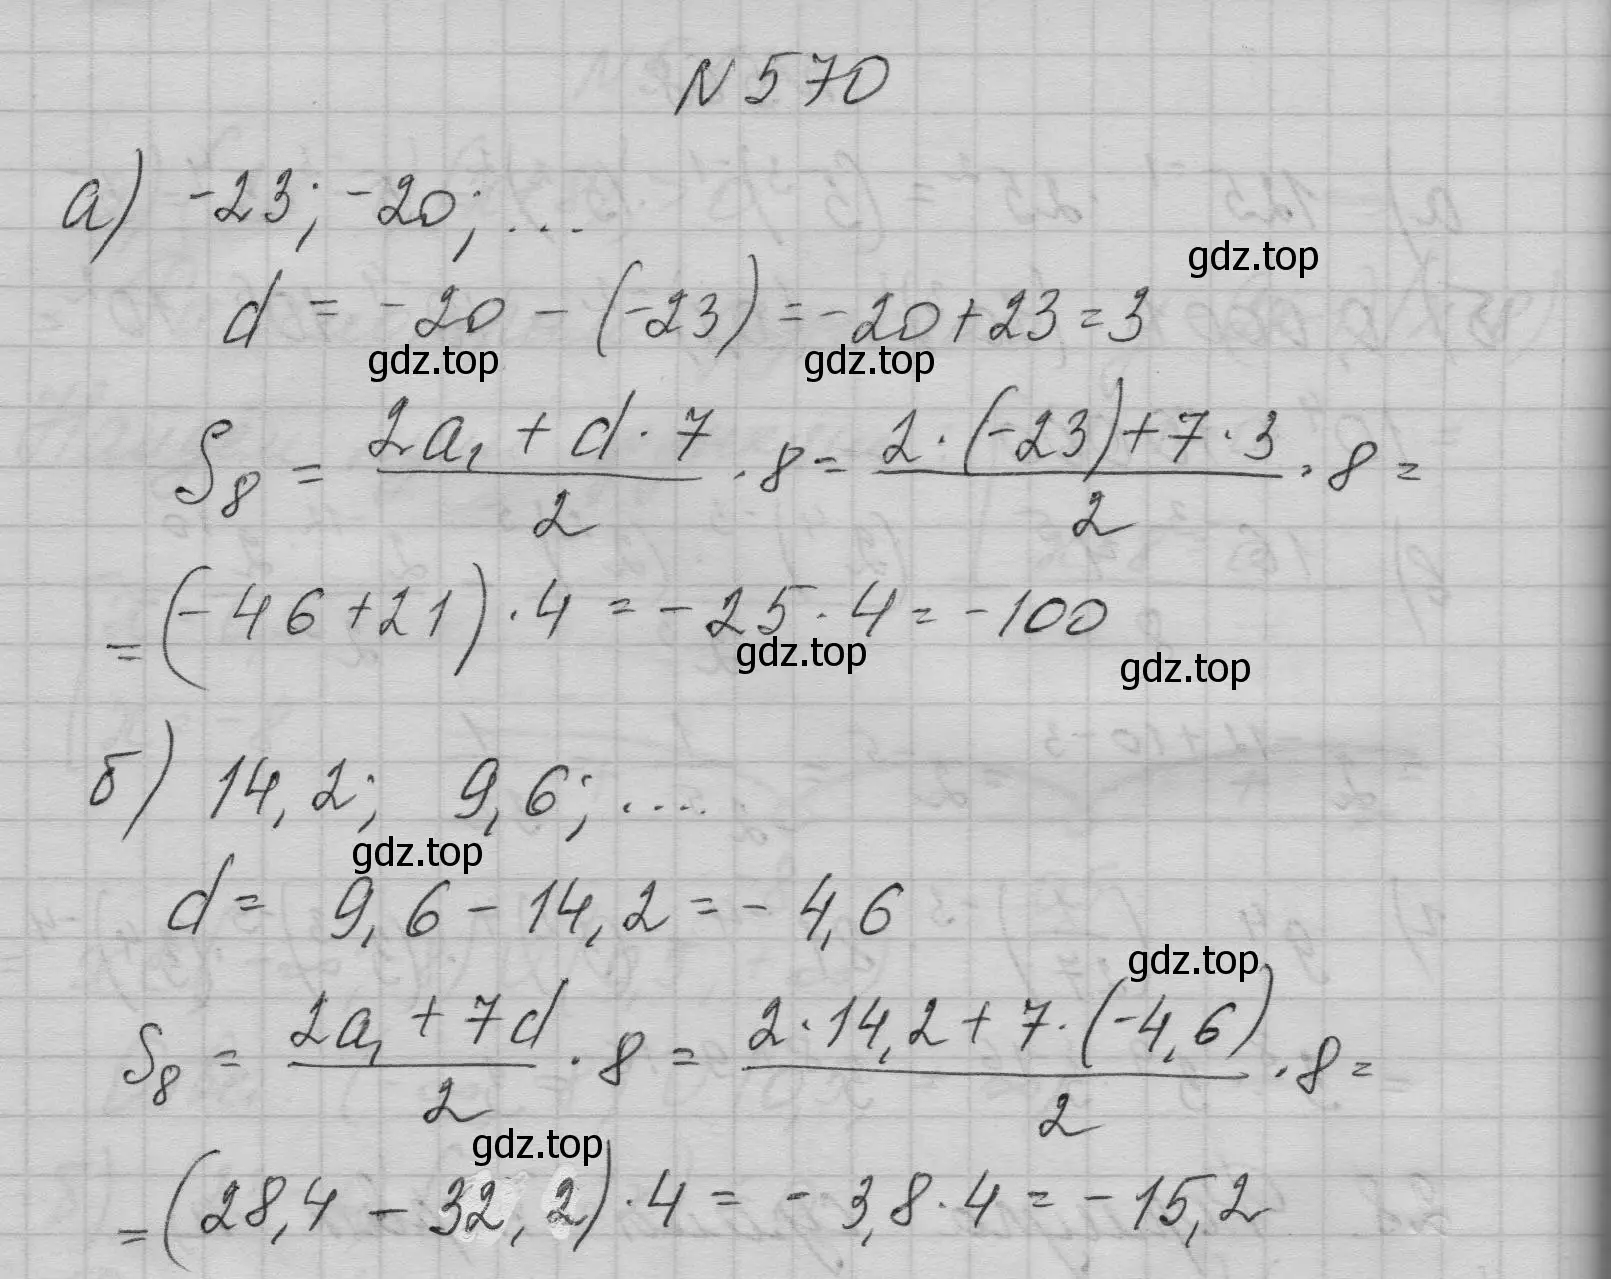 N 570
а) -23; -20; ...
gdz.top
d = -20 - (-23) = -20 + 23 = 3
gdz.top gdz.top
S₈ = (2a₁ + d · 7)/2 · 8 = (2 · (-23) + 7 · 3)/2 · 8 =
= (-46 + 21) · 4 = -25 · 4 = -100
gdz.top gdz.top
б) 14,2; 9,6; ....
gdz.top
d = 9,6 - 14,2 = -4,6
gdz.top
S₈ = (2a₁ + 7d)/2 · 8 = (2 · 14,2 + 7 · (-4,6))/2 · 8 =
gdz.top
= (28,4 - 32,2) · 4 = -3,8 · 4 = -15,2